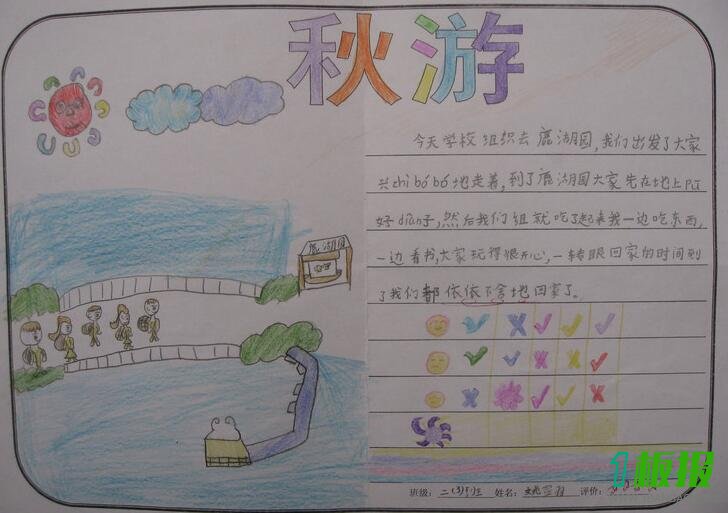 秋游
今天学校组织去鹿湖园,我们出发了大家
兴zhì bó bó 地走着,到了鹿湖园大家先在地上pū
好diàn子,然后我们组就吃了起来我一边吃东西,
一边看书,大家玩得很开心,一转眼回家的时间到
了我们都依依不舍地回家了。
鹿湖园
班级: 二(3)班 姓名: 评价:
板报